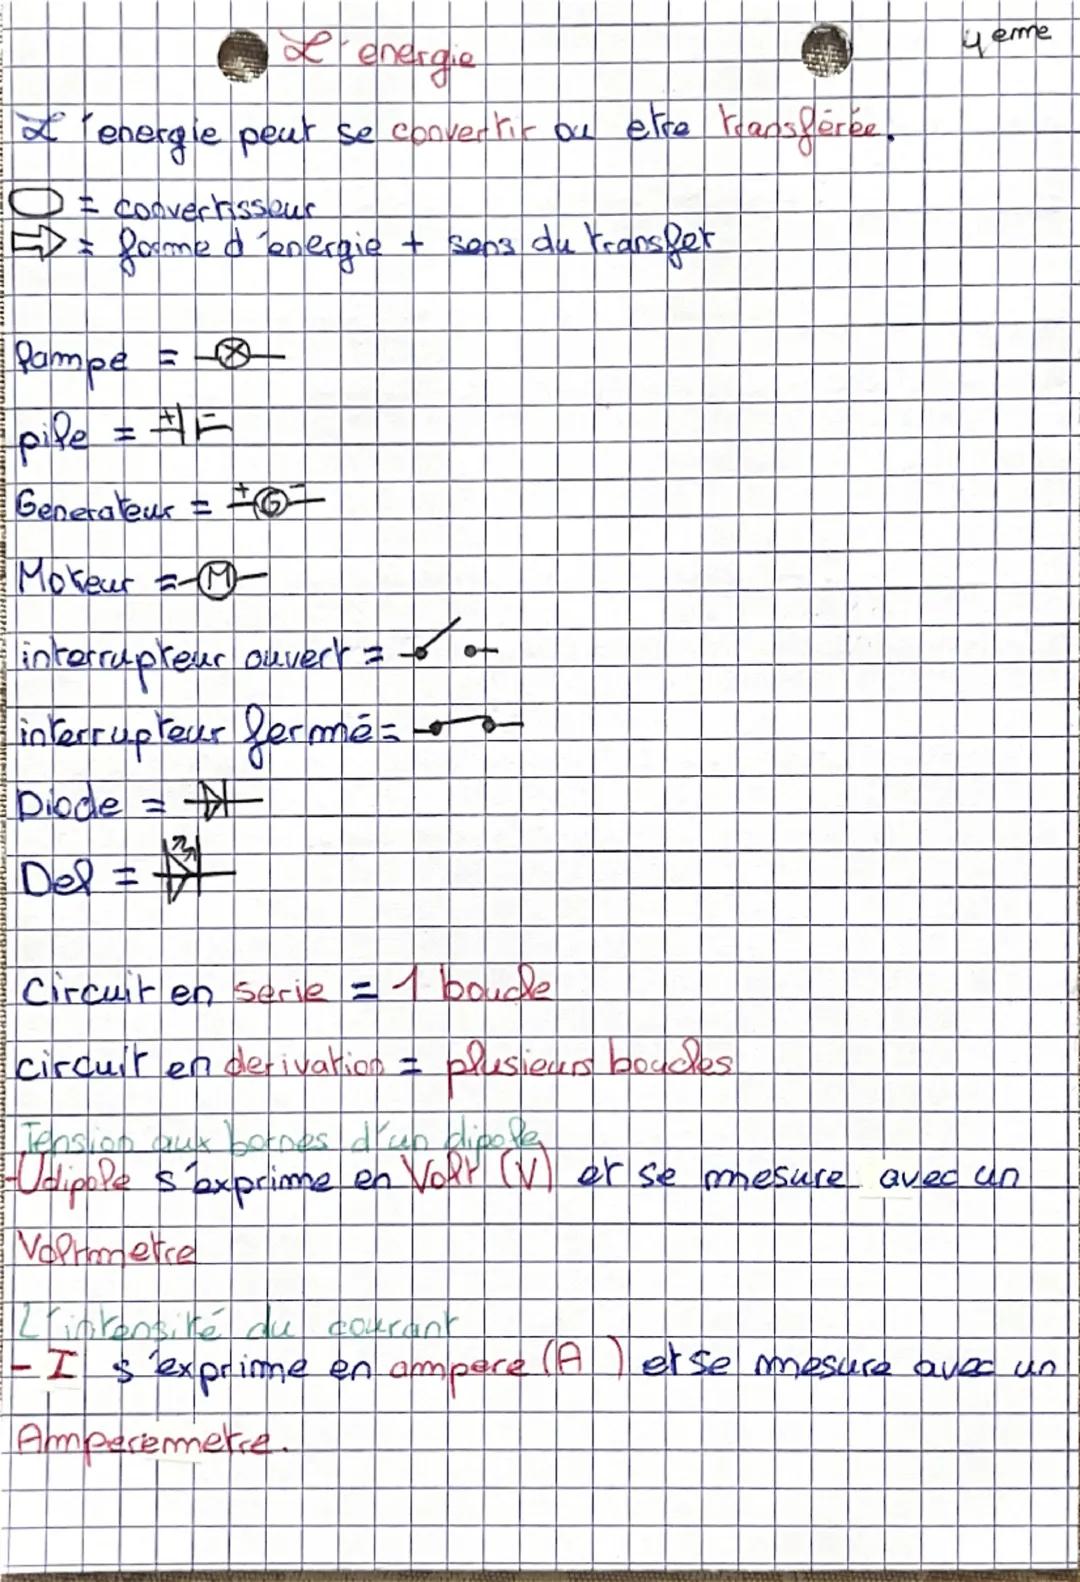 L'energie
4eme
L'energie peut se convertir ou etre transférée.
= convertisseur
= forme d'energie + sens du transfer
lampe =
pile = + -
Generateur = + G -
Moteur = M
interrupteur ouvert =
interrupteur fermé =
Diode =
Del =
Circuit en serie = 1 boucle
circuit en derivation = plusieurs boucles
Tension aux bornes d'un dipole
-Udipole s'exprime en Volt (V) et se mesure avec un
Voltmetre
L'intensité du courant
- I s'exprime en ampere (A ) et se mesure avec un
Amperemetre.